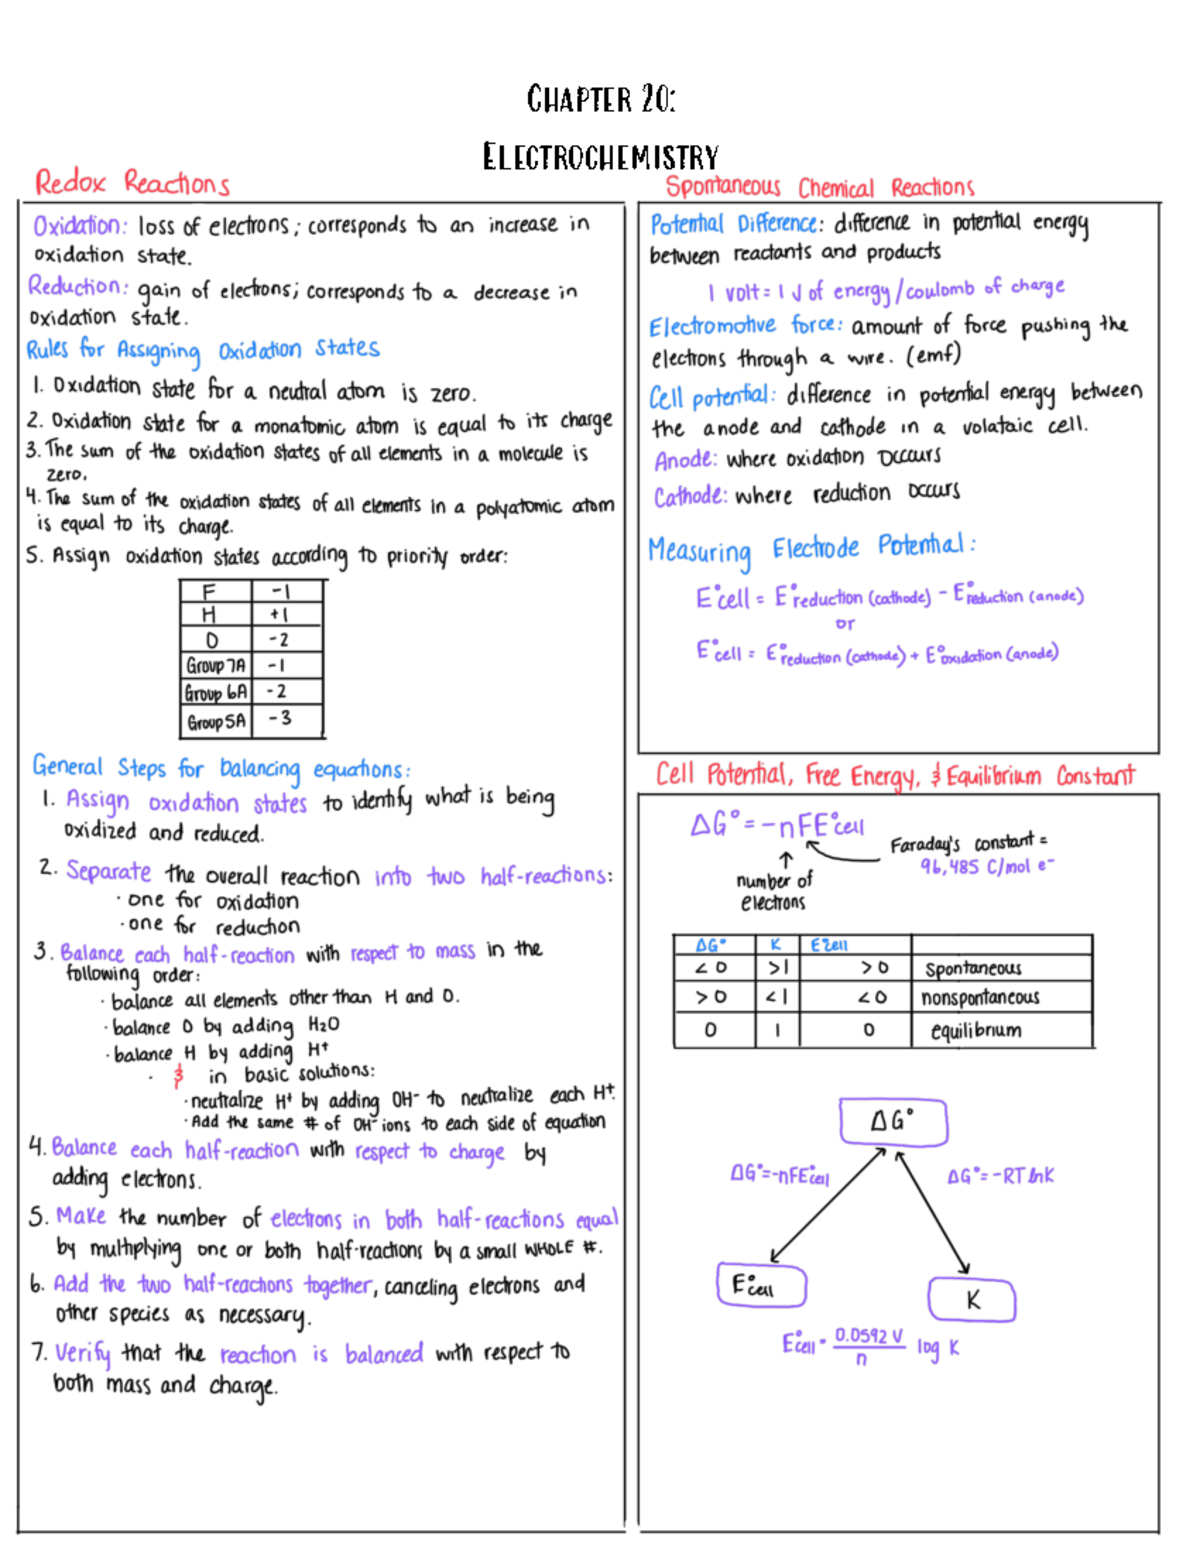 CHAPTER 20:
ELECTROCHEMISTRY
Redox Reactions
Oxidation: loss of electrons; corresponds to an increase in
oxidation state.
Reduction: gain of electrons; corresponds to a decrease in
oxidation state.
Rules for Assigning Oxidation States
1. Oxidation state for a neutral atom is zero.
2. Oxidation state for a monatomic atom is equal to its charge
3. The sum of the oxidation states of all elements in a molecule is
zero.
4. The sum of the oxidation states of all elements in a polyatomic atom
is equal to its charge.
5. Assign oxidation states according to priority order:
F -1
H +1
O -2
Group 7A -1
Group 6A -2
Group 5A -3
General Steps for balancing equations:
1. Assign oxidation states to identify what is being
oxidized and reduced.
2. Separate the overall reaction into two half-reactions:
· one for oxidation
· one for reduction
3. Balance each half-reaction with respect to mass in the
following order:
· balance all elements other than H and O.
· balance O by adding H₂O
· balance H by adding H⁺
· & in basic solutions:
· neutralize H⁺ by adding OH⁻ to neutralize each H⁺.
· Add the same # of OH⁻ ions to each side of equation
4. Balance each half-reaction with respect to charge by
adding electrons.
5. Make the number of electrons in both half-reactions equal
by multiplying one or both half-reactions by a small WHOLE #.
6. Add the two half-reactions together, canceling electrons and
other species as necessary.
7. Verify that the reaction is balanced with respect to
both mass and charge.
Spontaneous Chemical Reactions
Potential Difference: difference in potential energy
between reactants and products
1 volt = 1 J of energy/coulomb of charge
Electromotive force: amount of force pushing the
electrons through a wire. (emf)
Cell potential: difference in potential energy between
the anode and cathode in a volataic cell.
Anode: where oxidation occurs
Cathode: where reduction occurs
Measuring Electrode Potential:
E°cell = E°reduction (cathode) - E°reduction (anode)
or
E°cell = E°reduction (cathode) + E°oxidation (anode)
Cell Potential, Free Energy, & Equilibrium Constant
ΔG° = -nFE°cell
Faraday's constant =
96,485 C/mol e⁻
number of
electrons
ΔG° K E°cell
<0 >1 >0 spontaneous
>0 <1 <0 nonspontaneous
0 1 0 equilibrium
ΔG°
ΔG°=-nFE°cell ΔG°=-RT lnK
E°cell
K
E°cell = 0.0592 V / n log K